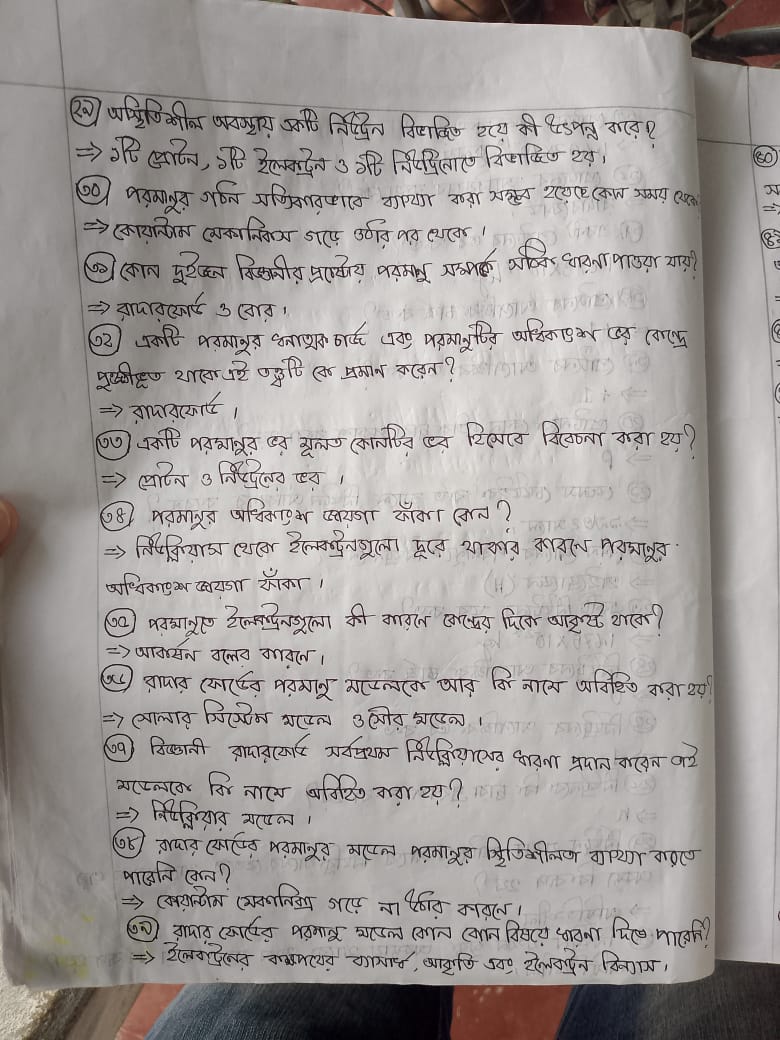 ২৯) অস্থিতিশীল অবস্থায় একটি নিউট্রন বিভাজিত হয়ে কী উৎপন্ন করে?
⇒ ১টি প্রোটন, ১টি ইলেকট্রন ও ১টি নিউট্রিনোতে বিভাজিত হয়।
৩০) পরমানুর গঠন সঠিকভাবে ব্যাখ্যা করা সম্ভব হয়েছে কোন সময় থেকে
⇒ কোয়ান্টাম মেকানিকস গড়ে ওঠার পর থেকে।
৩১) কোন দুইজন বিজ্ঞানীর প্রচেষ্টায় পরমানু সম্পর্কে সঠিক ধারনা পাওয়া যায়?
⇒ রাদারফোর্ড ও বোর।
৩২) একটি পরমানুর ধনাত্মক চার্জ এবং পরমানুটির অধিকাংশ ভর কেন্দ্রে
পুঞ্জীভূত থাকে এই তত্ত্বটি কে প্রমান করেন?
⇒ রাদারফোর্ড।
৩৩) একটি পরমানুর ভর মূলত কোনটির ভর হিসেবে বিবেচনা করা হয়?
⇒ প্রোটন ও নিউট্রনের ভর।
৩৪) পরমানুর অধিকাংশ জায়গা ফাঁকা কেন?
⇒ নিউক্লিয়াস থেকে ইলেকট্রনগুলো দূরে থাকার কারনে পরমানুর
অধিকাংশ জায়গা ফাঁকা।
৩৫) পরমানুতে ইলেকট্রনগুলো কী কারনে কেন্দ্রের দিকে আকৃষ্ট থাকে?
⇒ আকর্ষন বলের কারনে।
৩৬) রাদার ফোর্ডের পরমানু মডেলকে আর কি নামে অবিহিত করা হয়?
⇒ সোলার সিস্টেম মডেল ও সৌর মডেল।
৩৭) বিজ্ঞানী রাদারফোর্ড সর্বপ্রথম নিউক্লিয়াসের ধারনা প্রদান করেন এই
মডেলকে কি নামে অবিহিত করা হয়?
⇒ নিউক্লিয়ার মডেল।
৩৮) রাদার ফোর্ডের পরমানুর মডেল পরমানুর স্থিতিশীলতা ব্যাখ্যা করতে
পারেনি কেন?
⇒ কোয়ান্টাম মেকানিক্স গড়ে না উঠার কারনে।
৩৯) রাদার ফোর্ডের পরমানু মডেল কোন কোন বিষয়ে ধারনা দিতে পারেনি?
⇒ ইলেকট্রনের কক্ষপথের ব্যাসার্ধ, আকৃতি এবং ইলেকট্রন বিন্যাস।
৪০)